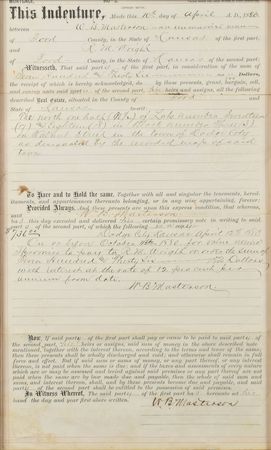 MORTGAGE.
This Indenture, Made this 10th day of April A. D. 1880
between W. B. Masterson an unmarried man
of Ford County, in the State of Kansas of the first part,
and R. M. Wright
of Ford County, in the State of Kansas of the second part:
Witnesseth, That said part of the first part, in consideration of the sum of
One Hundred & Thirty Six Dollars,
the receipt of which is hereby acknowledged, do by these presents, grant, bargain, sell,
and convey unto said part of the second part, his heirs and assigns, all the following
described Real Estate, situated in the County of Ford and
State of Kansas, to-wit:
The north one half (N ½) of Lots number
in Block number
on Street in the town of Dodge City
as designated by the recorded map of said
town
To Have and to Hold the same, Together with all and singular the tenements, heredi-
taments, and appurtenances thereunto belonging, or in any wise appertaining, forever:
Provided Always, And these presents are upon this express condition, that whereas,
said W. B. Masterson
has this day executed and delivered certain promissory note in writing to said
part of the second part, of which the following
$136.00 Dodge City Kansas April 10th 1880
On or before October 10th 1880 for value received
I promise to pay to R. M. Wright or order the sum of
One Hundred & Thirty Six Dollars
with interest at the rate of 12 per cent per
annum from date
W. B. Masterson
Now, If said part of the first part shall pay or cause to be paid to said part of
the second part, heirs or assigns, said sum of money in the above described note
mentioned, together with the interest thereon, according to the terms and tenor of the same,
then these presents shall be wholly discharged and void; and otherwise shall remain in full
force and effect. But if said sum or sums of money, or any part thereof, or any interest
thereon, is not paid when the same is due; and if the taxes and assessments of every nature
which are or may be assessed and levied against said premises or any part thereof are not
paid when the same are by law made due and payable, then the whole of said sum and
sums, and interest thereon, shall, and by these presents become due and payable, and said
part of the second part shall be entitled to the possession of said premises.
In Witness Whereof, The said part of the first part has hereunto set his
hand the day and year first above written.
W. B. Masterson